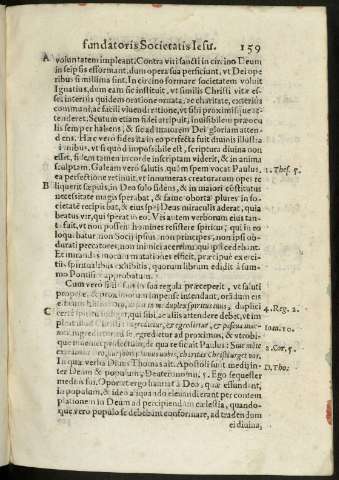 fundatoris Societatis Iesu. 159
A voluntatem impleant. Contra viri sancti in circino Deum
in seipsis efformant, dum opera sua perficiunt, vt Dei ope
ribus simillima sint. In circino formare societatem voluit
Ignatius, dum eam sic instituit, vt similis Christi vitæ es-
set interiùs quidem oratione ornata, ac charitate, exteriùs
communi, ac facili eruditione, vt sibi proximisque
tenderet. Scutum etiam fidei
lis semper habens, & sic ad maiorem Dei gloriam atten-
dens. Hæc vero fides ita in eo perfecta fuit diuinis illustra
ionibus, vt si quod impossibile est, scriptura diuina non
esset, fidem tamen in corde inscriptam viderit, & in anima
sculptam. Galeam verò salutis, qu spem vocat Paulus, 1. Thes. 5.
ea perfectione retinuit, vt innumeras creaturarum opes re
B liquerit sæpius, in Deo solo fidens, & in maiori constitutus
necessitate magis sperabat, & fame oborta plures in so-
cietatē recipiebat, & eius spei Deus miraculis aderat, quia
beatus vir, qui sperat in eo. Vei autem verborum eius tan-
ta fuit, vt non possent homines resistere spiritui, qui in eo
loquebatur non Socij ipsius, non principes, non ipsi ob-
durati peccatores, non inimici acerrimi, qui ipsi cedebant.
Et mirandas morum mutationes effecit, præcipuè exerci-
tiis spiritualibus exhibitis, quorum librum edidit à sum-
mo Pontifice approbatum.
Cum vero sui in sua regula præceperit, vt saluti
propriæ, & proximorum impensè intendant, orādum eis
duplex spiritus tuus, dupli- 4. Reg. 2.
C certè spiritu indiget, qui sibi, ac aliis attendere debet, vt im
ingredietur, & egredietur, & pascua inue- Ioan. 10.
ingrediatur in se, egrediatur ad proximos, & vtrobi-
que inueniat perfectionē, de qua re ait Paulus: Siue mēte 2. Cor. 5.
vobis, charitas Christi urget nos.
In quæ verba Diuus Thomas ait. Apostoli sunt medij in- D. Tho.
ter Deum & populum, Deuteronomij. 5. Ego sequester
medius fui. Oportet ergo hauriāt à Deo, quæ effundant,
in populum, & ideo aliquando eleuandi erant per contem
plationem in Deum ad percipiendam cælestia, quando-
que vero populo se debebant conformare, ad tradendum
ei diuina,